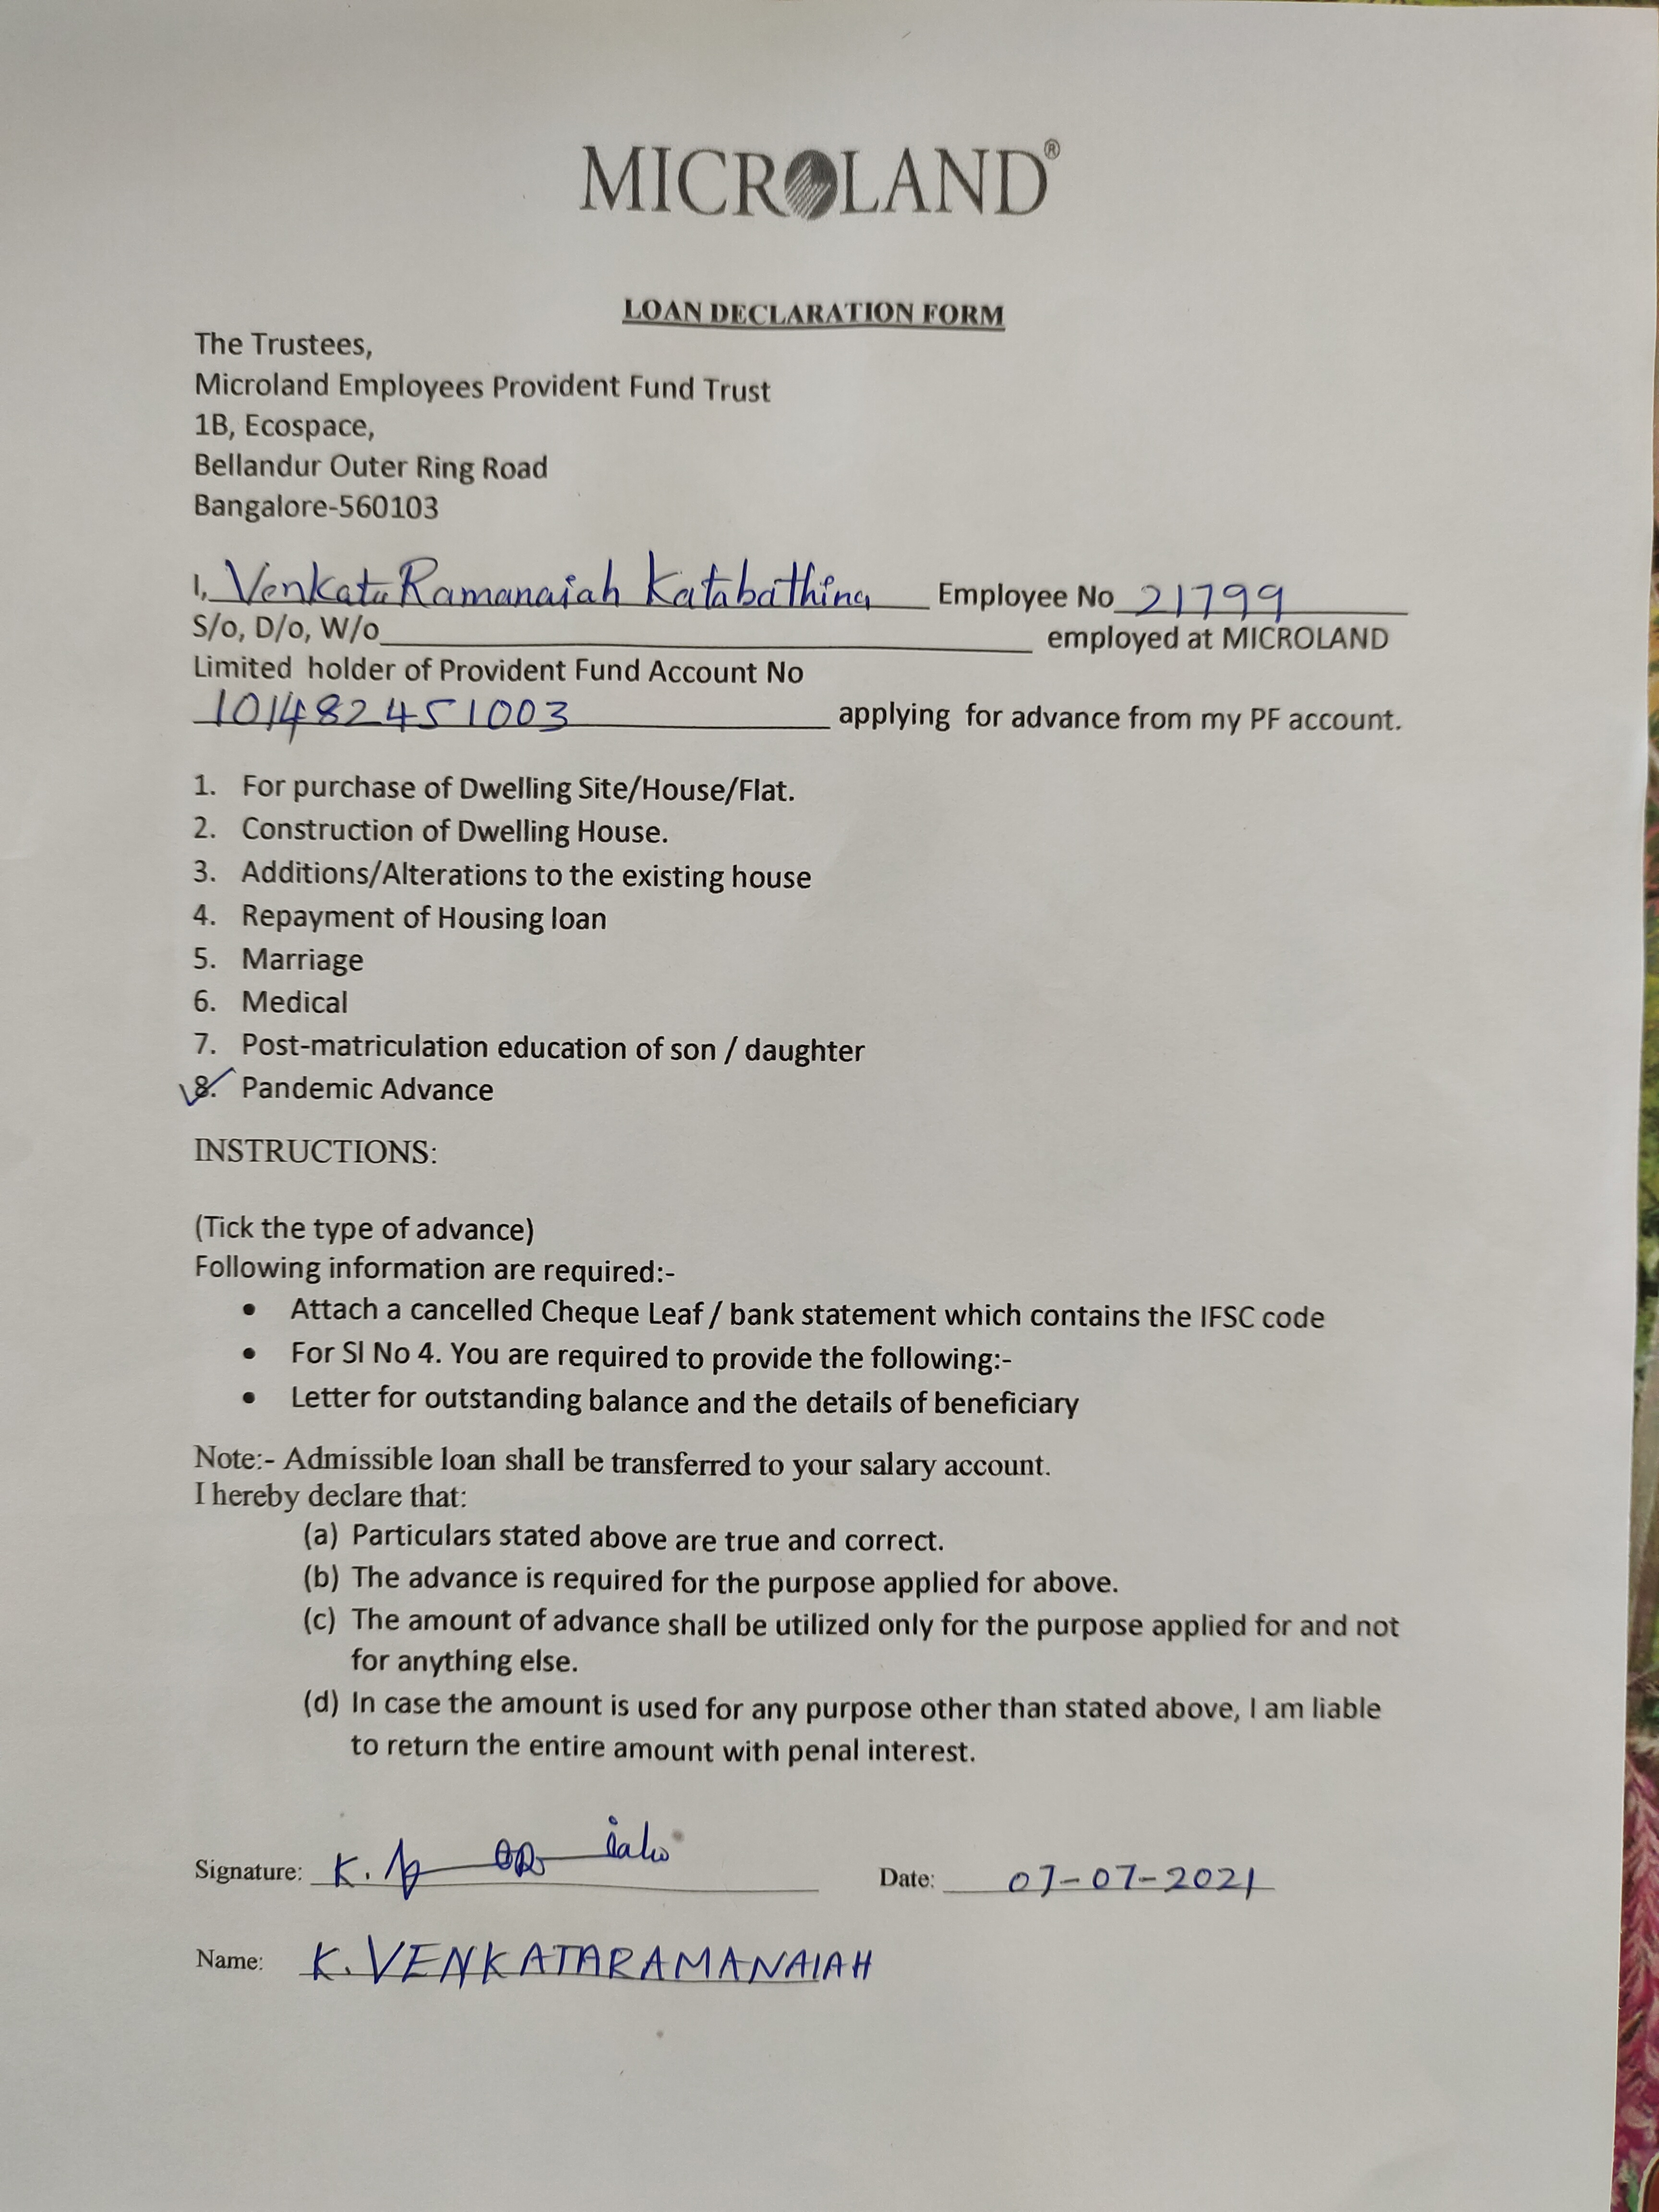 MICROLAND®
LOAN DECLARATION FORM
The Trustees,
Microland Employees Provident Fund Trust
1B, Ecospace,
Bellandur Outer Ring Road
Bangalore-560103
I, Venkata Ramanaiah Katabathina Employee No 21799
S/o, D/o, W/o employed at MICROLAND
Limited holder of Provident Fund Account No
101482451003 applying for advance from my PF account.
1. For purchase of Dwelling Site/House/Flat.
2. Construction of Dwelling House.
3. Additions/Alterations to the existing house
4. Repayment of Housing loan
5. Marriage
6. Medical
7. Post-matriculation education of son / daughter
8. Pandemic Advance
INSTRUCTIONS:
(Tick the type of advance)
Following information are required:-
• Attach a cancelled Cheque Leaf / bank statement which contains the IFSC code
• For Sl No 4. You are required to provide the following:-
• Letter for outstanding balance and the details of beneficiary
Note:- Admissible loan shall be transferred to your salary account.
I hereby declare that:
(a) Particulars stated above are true and correct.
(b) The advance is required for the purpose applied for above.
(c) The amount of advance shall be utilized only for the purpose applied for and not
for anything else.
(d) In case the amount is used for any purpose other than stated above, I am liable
to return the entire amount with penal interest.
Signature: K. Date: 07-07-2021
Name: K. VENKATARAMANAIAH